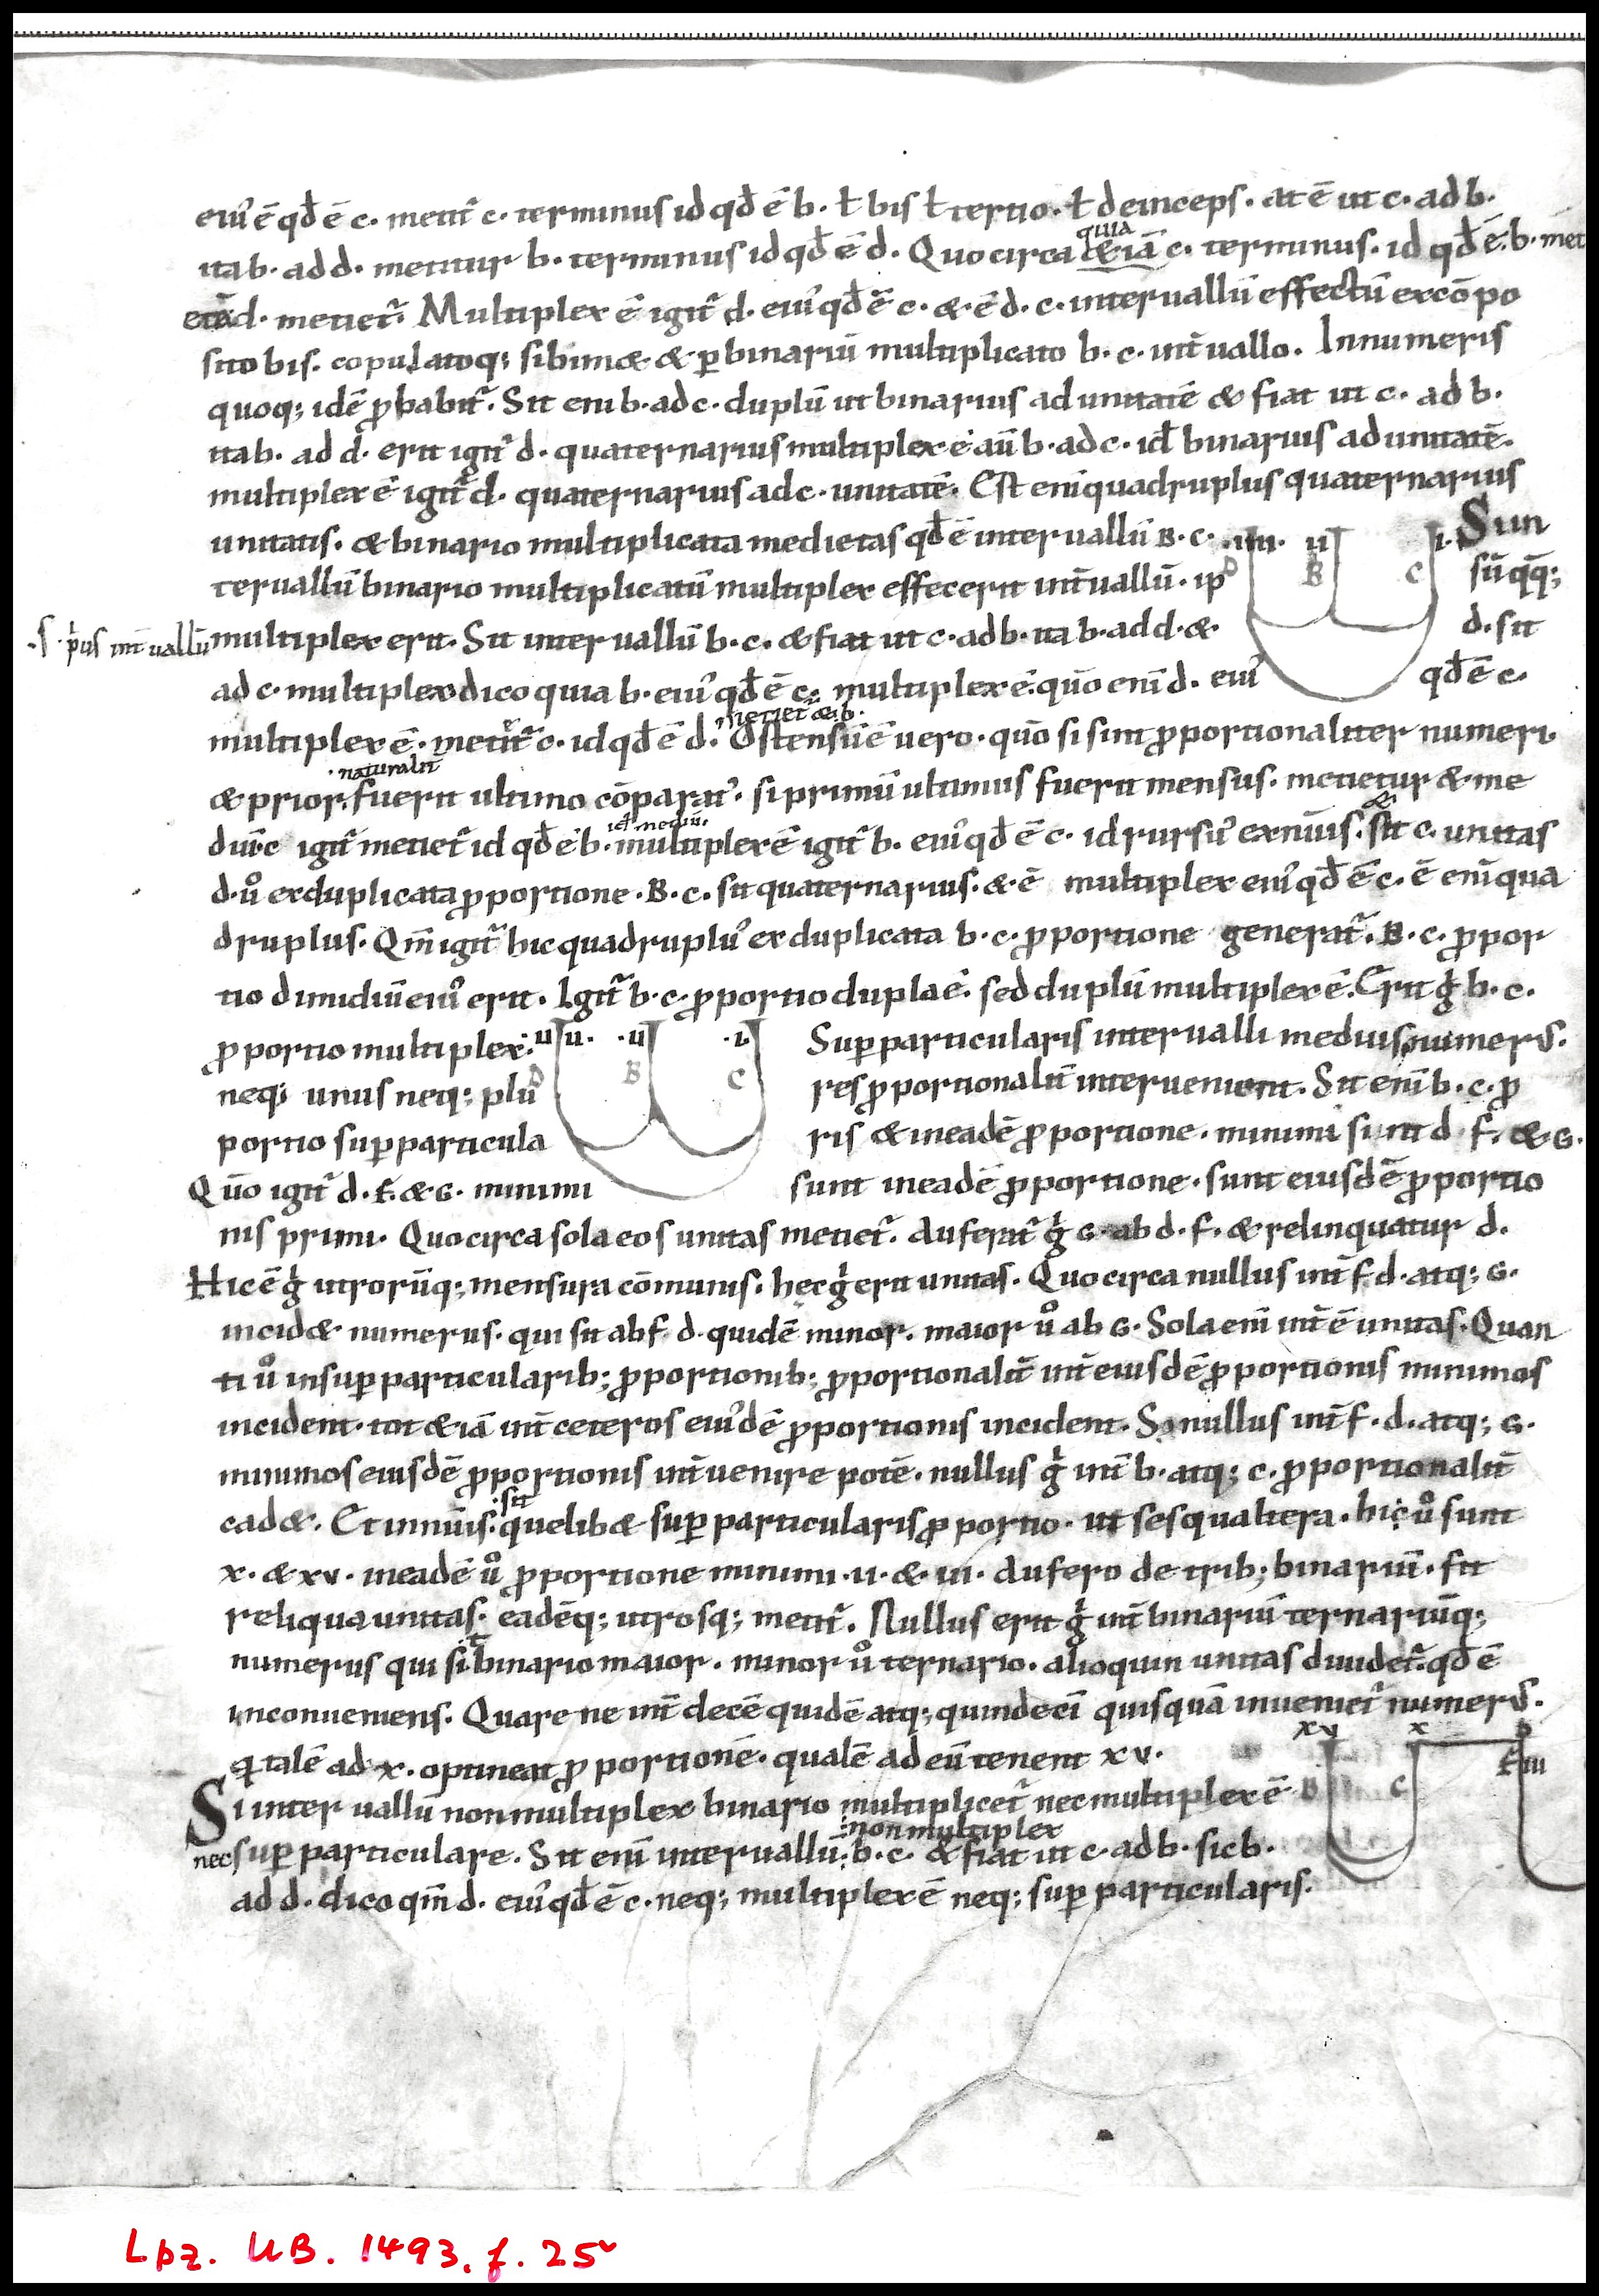 eiuˀ ē qđ ē c. metit᷑ c. terminus id qđ ē b. ł bis ł tertio. ł deinceps. at ē ut c. ad b.
quia
ita b. ad d. metitur b. terminus id qđ ē d. Quocirca &iā c. terminus. id qđ ē. b. met
etiā d. metiet᷑. Multiplex ē igit᷑ d. eiuˀ qđ ē c. & ē d. c. interuallū effectū ex cōpo
sito bis. copulatoq; sibim& & p̱ binariū multiplicato b. c. int̄uallo. In numeris
quoq; idē ꝓbabit᷑. Sit eni b. ad c. duplū ut binarius ad unitatē & fiat ut c. ad b.
ita b. ad d. erit igit᷑ d. quaternarius multiplex ē aū b. ad c. id ł binarius ad unitatē.
multiplex ē igit᷑ d. quaternarius ad c. unitatē. Est enī quadruplus quaternarius
unitatis. & binario multiplicata medietas qđ ē interuallū B. c. .iiii. ii i. S un
teruallū binario multiplicatū multiplex effecerit int̄uallū. ip D B C sū q̄q;
.s. p̓us int̄uallū multiplex erit. Sit interuallū b. c. & fiat ut c. ad b. ita b. ad d. & d. sit
ad c. multiplex dico quia b. eiuˀ qđ ē c. multiplex ē. quō enī d. eiuˀ qđ ē c.
metiet᷑ & b.
multiplex ē. metit᷑ c. id qđ ē d. Ostensū ē uero. quō si sint ꝓportionaliter numeri.
.naturalit̄
& prior. fuerit ultimo cōparatˀ. si primū ultimus fuerit mensus. metietur & me
id mediū.
diū. c igit᷑ metiet᷑ id qđ ē b. multiplex ē igit᷑ b. eiuˀ qđ ē c. id rursuˀ ex nūis. sit c. unitas
d. ů ex duplicata ꝓportione. B. c. sit quaternarius. & ē multiplex eiuˀ qđ ē c. ē enī qua
druplus. Qm̄ igit᷑ hic quadrupluˀ ex duplicata b. c. ꝓportione generat᷑. B. c. ꝓpor
tio dimidiū eiuˀ erit. Igit᷑ b. c. ꝓportio dupla ē. sed duplū multiplex ē. Erit g̓ b. c.
ꝓportio multiplex. ii ii. .ii .i. Sup̱particularis interualli medius numerˀ.
neq; unus neq; plu D B C res ꝓportionalit̄ interuenient. Sit enī b. c. ꝓ
portio sup̱particula ris & in eadē ꝓportione. minimi sint d. f. & G.
Quō igit᷑ d. f. & G. minimi sunt in eadē ꝓportione. sunt eiusdē ꝓportio
nis primi. Quocirca sola eos unitas metiet᷑. Auferat᷑ g̓ G. ab d. f. & relinquatur d.
Hic ē g̓ utrorūq; mensura cōmunis. hec g̓ erit unitas. Quocirca nullus int̄ f. d. atq; G.
incid& numerus. qui sit ab f. d. quidē minor. maior ů ab G. Sola enī int̄ ē unitas. Quan
ti ů in sup̱particularib; ꝓportionib; ꝓportionalit̄ int̄ eiusdē ꝓportionis minimos
incident. tot &iā int̄ ceteros eiuˀdē ꝓportionis incident. S; nullus int̄ f. d. atq; G.
minimos eiusdē ꝓportionis int̄uenire potē. nullus g̓ int̄ b. atq; c. ꝓportionalit̄
:sit
cad&. Et in nūis. quelib& sup̱particularis ꝓportio. ut sesqualtera. hic ů sunt
x. & xv. in eadē ů ꝓportione minimi. ii. & iii. Aufero de trib; binariū. fit
reliqua unitas. eadēq; utrosq; metit᷑. Nullus erit g̓ int̄ binariū ternariūq;
numerus qui sit binario maior. minor ů ternario. alioquin unitas diuidet᷑. qđ ē
inconueniens. Quare ne int̄ decē quidē atq; quindecī quisquā inueniet᷑ numerˀ.
q talē ad x. optineat ꝓportionē. qualē ad eū tenent xv. xv x D
F iii
Si interuallū non multiplex binario multiplicet᷑ nec multiplex ē B C
:non multiplex
nec sup̱particulare. Sit enī interuallū. b. c. & fiat ut c. ad b. sic b.
ad d. dico qm̄ d. eiuˀ qđ ē c. neq; multiplex ē neq; sup̱particularis.
Lpz. UB. 1493. f. 25ᵛ